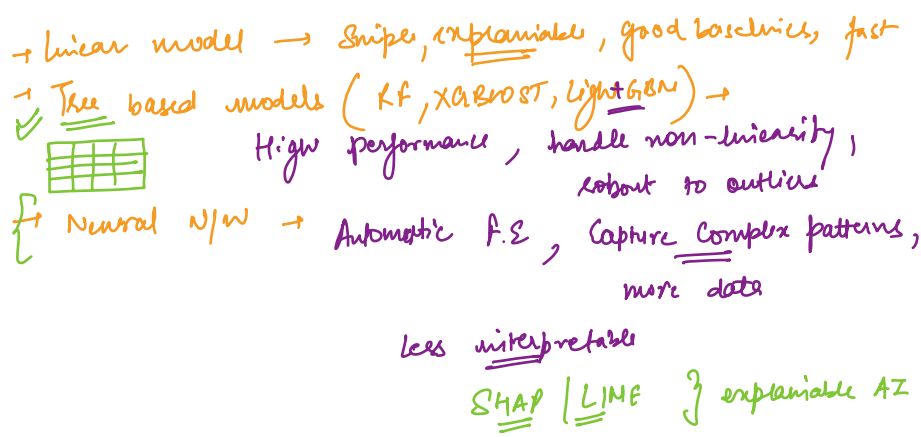 → Linear model → Simple, explainable, good baselines, fast
→ Tree based models (RF, XGBOOST, LightGBM) →
High performance, handle non-linearity,
robust to outliers
→ Neural N/W → Automatic F.E, Capture Complex patterns,
more data
Less interpretable
SHAP | LIME } explainable AI